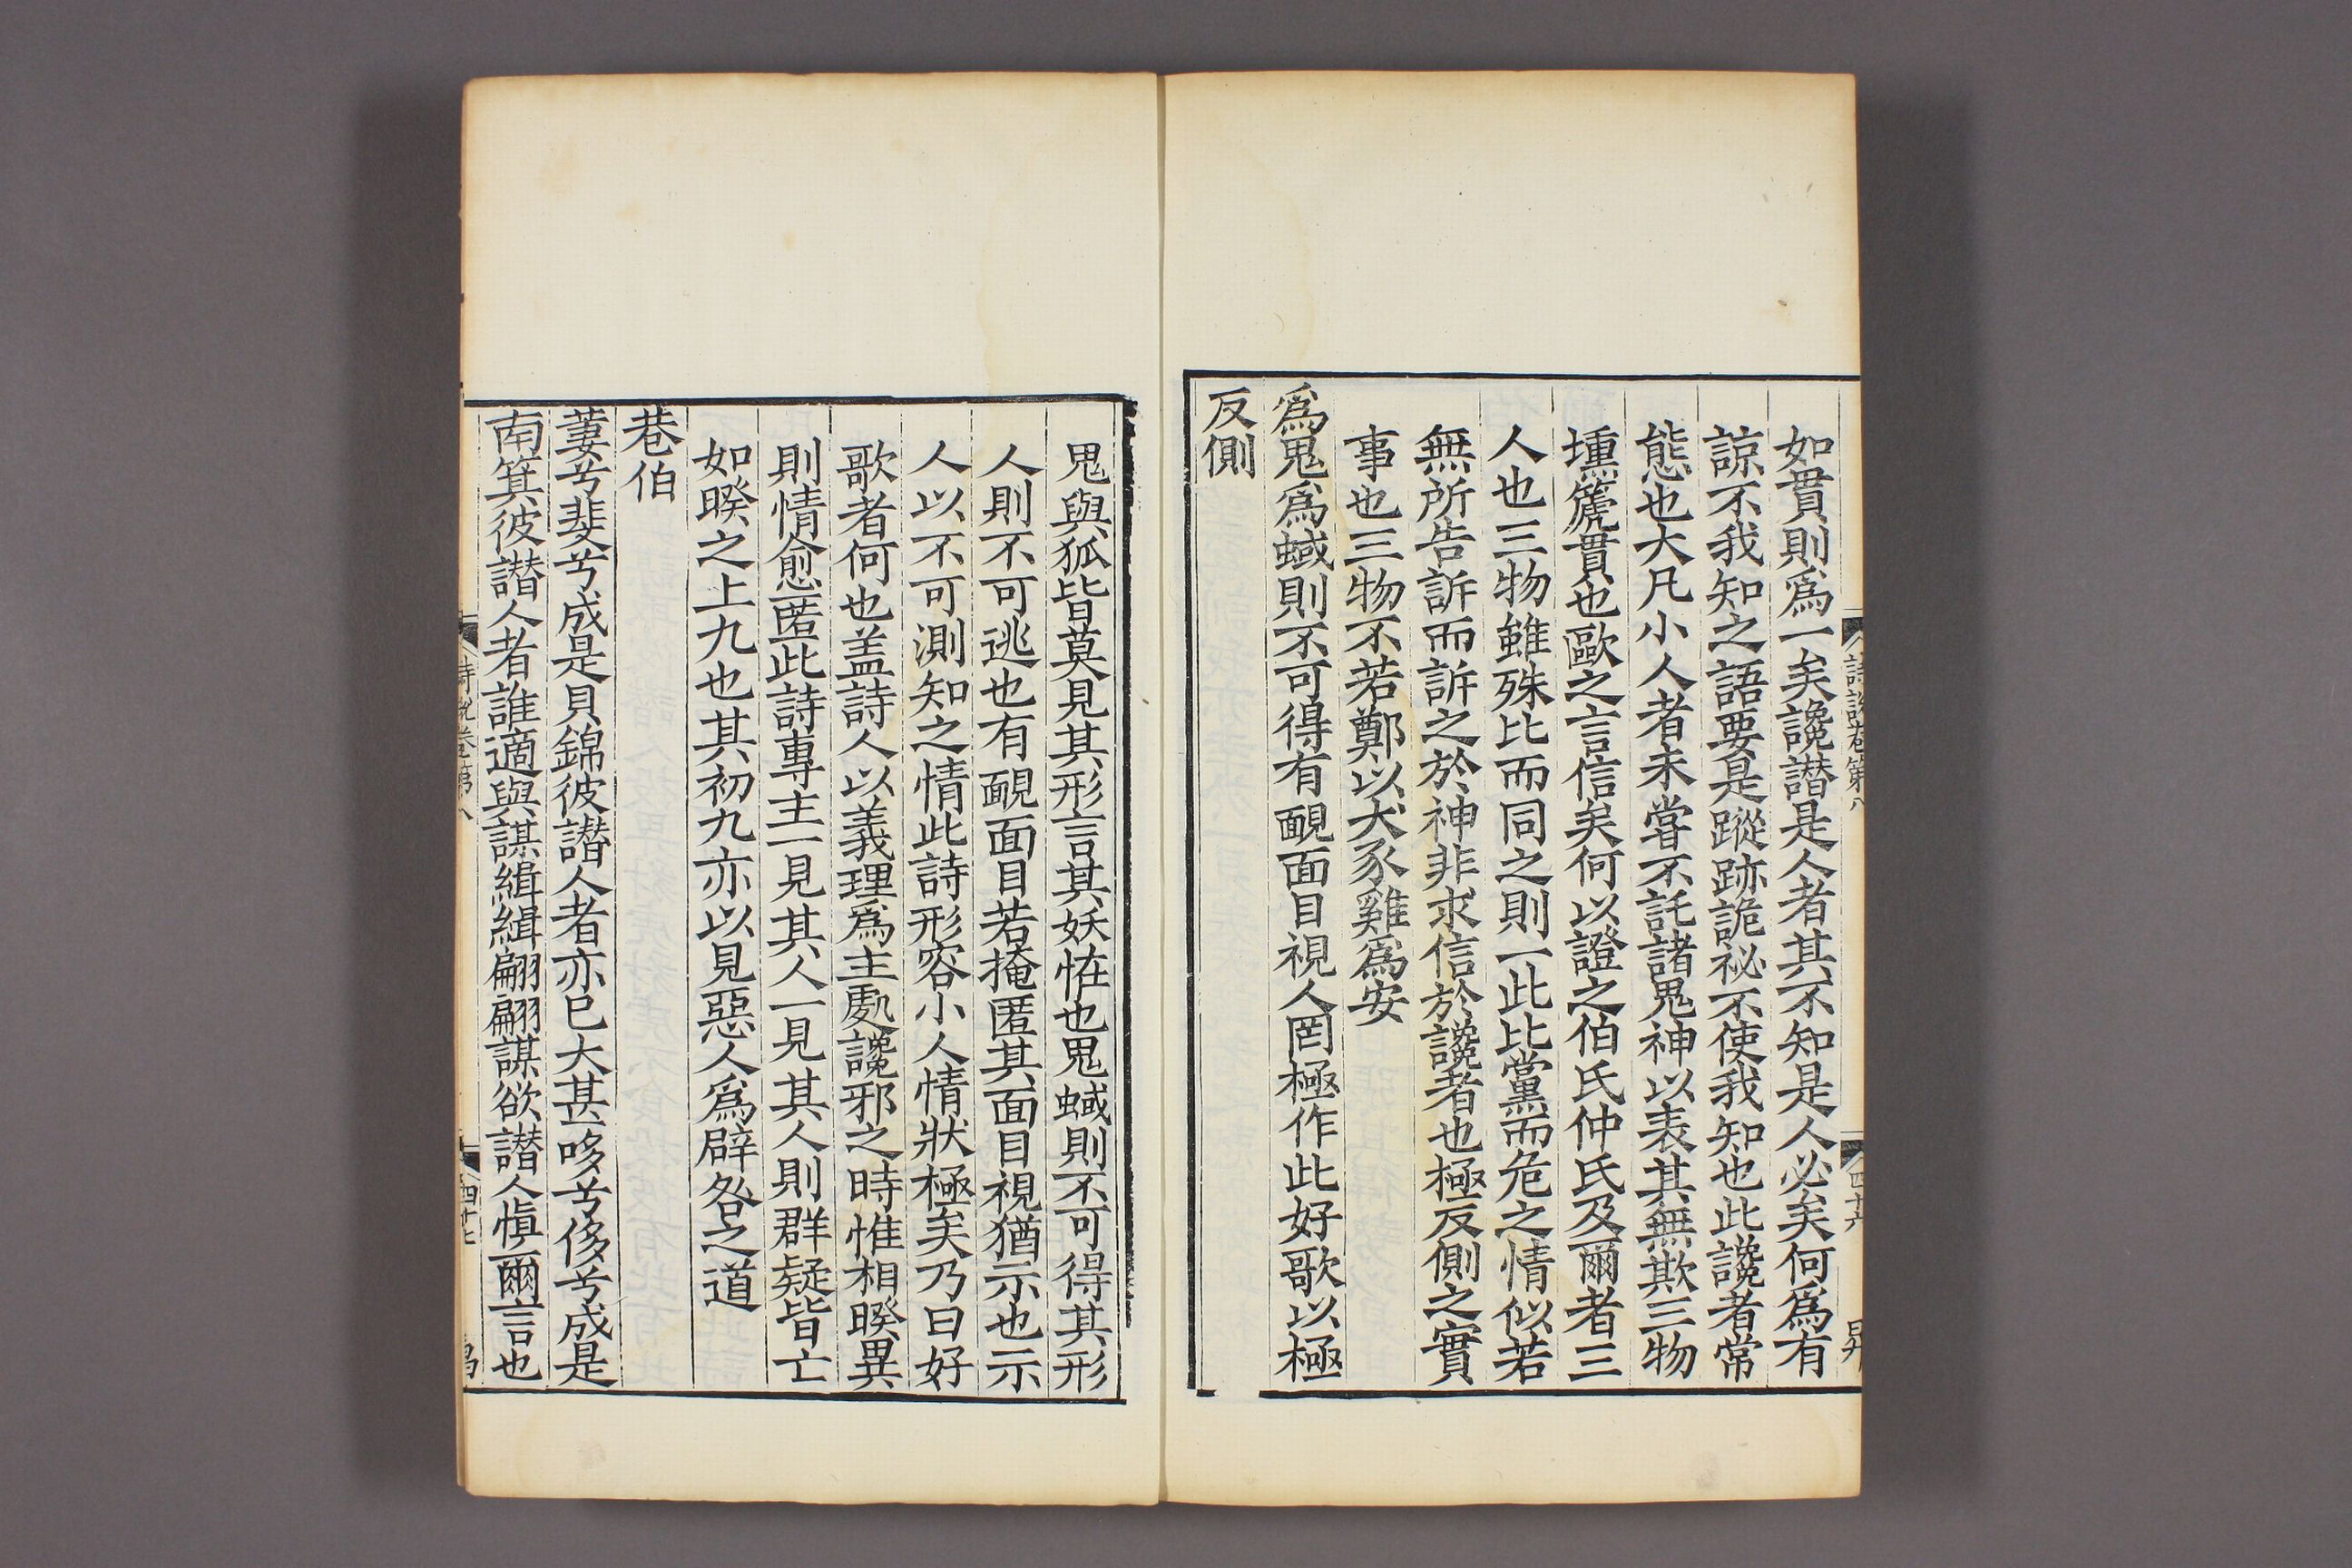 如貫則爲一矣讒譛是人者其不知是人必矣何爲有
諒不我知之語要是蹤跡詭祕不使我知也此讒者常
態也大凡小人者未嘗不託諸鬼神以表其無欺三物
壎篪貫也歐之言信矣何以證之伯氏仲氏及爾者三
人也三物雖殊比而同之則一此比黨而危之情似若
無所告訴而訴之於神非求信於讒者也極反側之實
事也三物不若鄭以犬豕雞爲安
爲鬼爲蜮則不可得有靦面目視人罔極作此好歌以極
反側
鬼與狐皆莫見其形言其妖恠也鬼蜮則不可得其形
人則不可逃也有靦面目若掩匿其面目視猶示也示
人以不可測知之情此詩形容小人情狀極矣乃曰好
歌者何也盖詩人以義理爲主處讒邪之時惟相睽異
則情愈匿此詩專主一見其人一見其人則群疑皆亡
如睽之上九也其初九亦以見惡人爲辟咎之道
巷伯
萋兮斐兮成是貝錦彼譛人者亦巳大甚哆兮侈兮成是
南箕彼譛人者誰適與謀緝緝翩翩謀欲譛人愼爾言也
詩說卷第八
四十六
昇
詩說卷第八
四十七